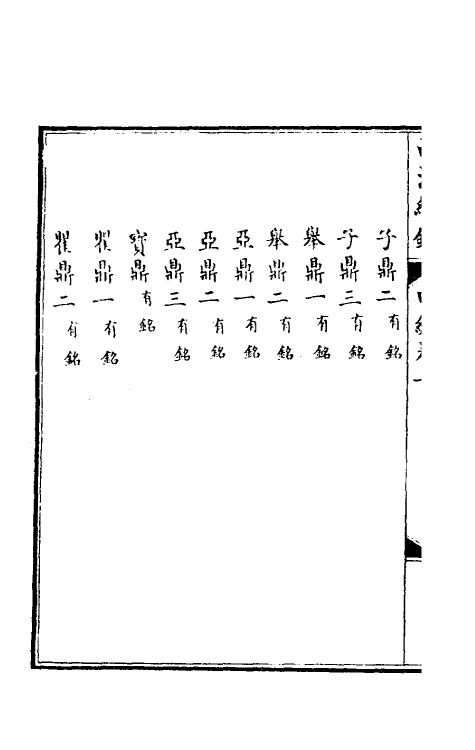 子鼎二有銘
子鼎三有銘
舉鼎一有銘
舉鼎二有銘
亞鼎一有銘
亞鼎二有銘
亞鼎三有銘
寳鼎有銘
瞿鼎一有銘
瞿鼎二有銘